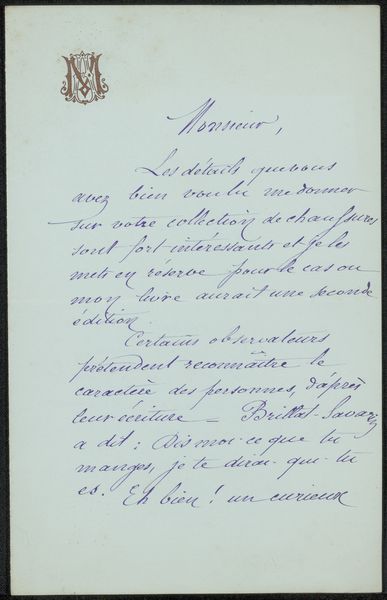 Monsieur,
Les détails que vous
avez bien voulu me donner
sur votre collection de chaussures
sont fort intéressants et je les
mets en réserve pour le cas ou
mon livre aurait une seconde
édition.
Certains observateurs
prétendent reconnaître le
caractère des personnes, d'après
leur écriture = Brillat-Savarin
a dit : Dis moi ce que tu
manges, je te dirai qui tu
es. Eh bien ! un curieux